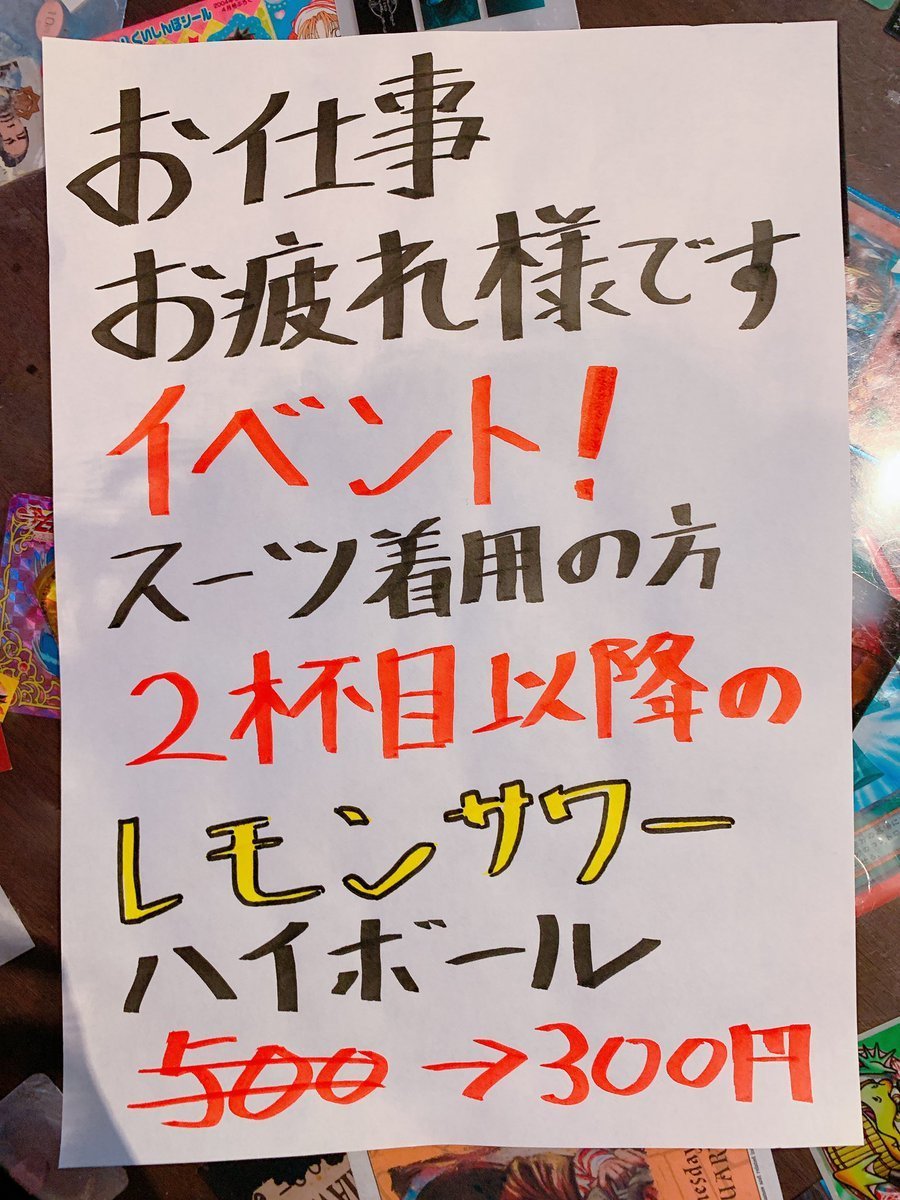 くいしんぼシール
お仕事
お疲れ様です
イベント！
スーツ着用の方
2杯目以降の
レモンサワー
ハイボール
500→300円